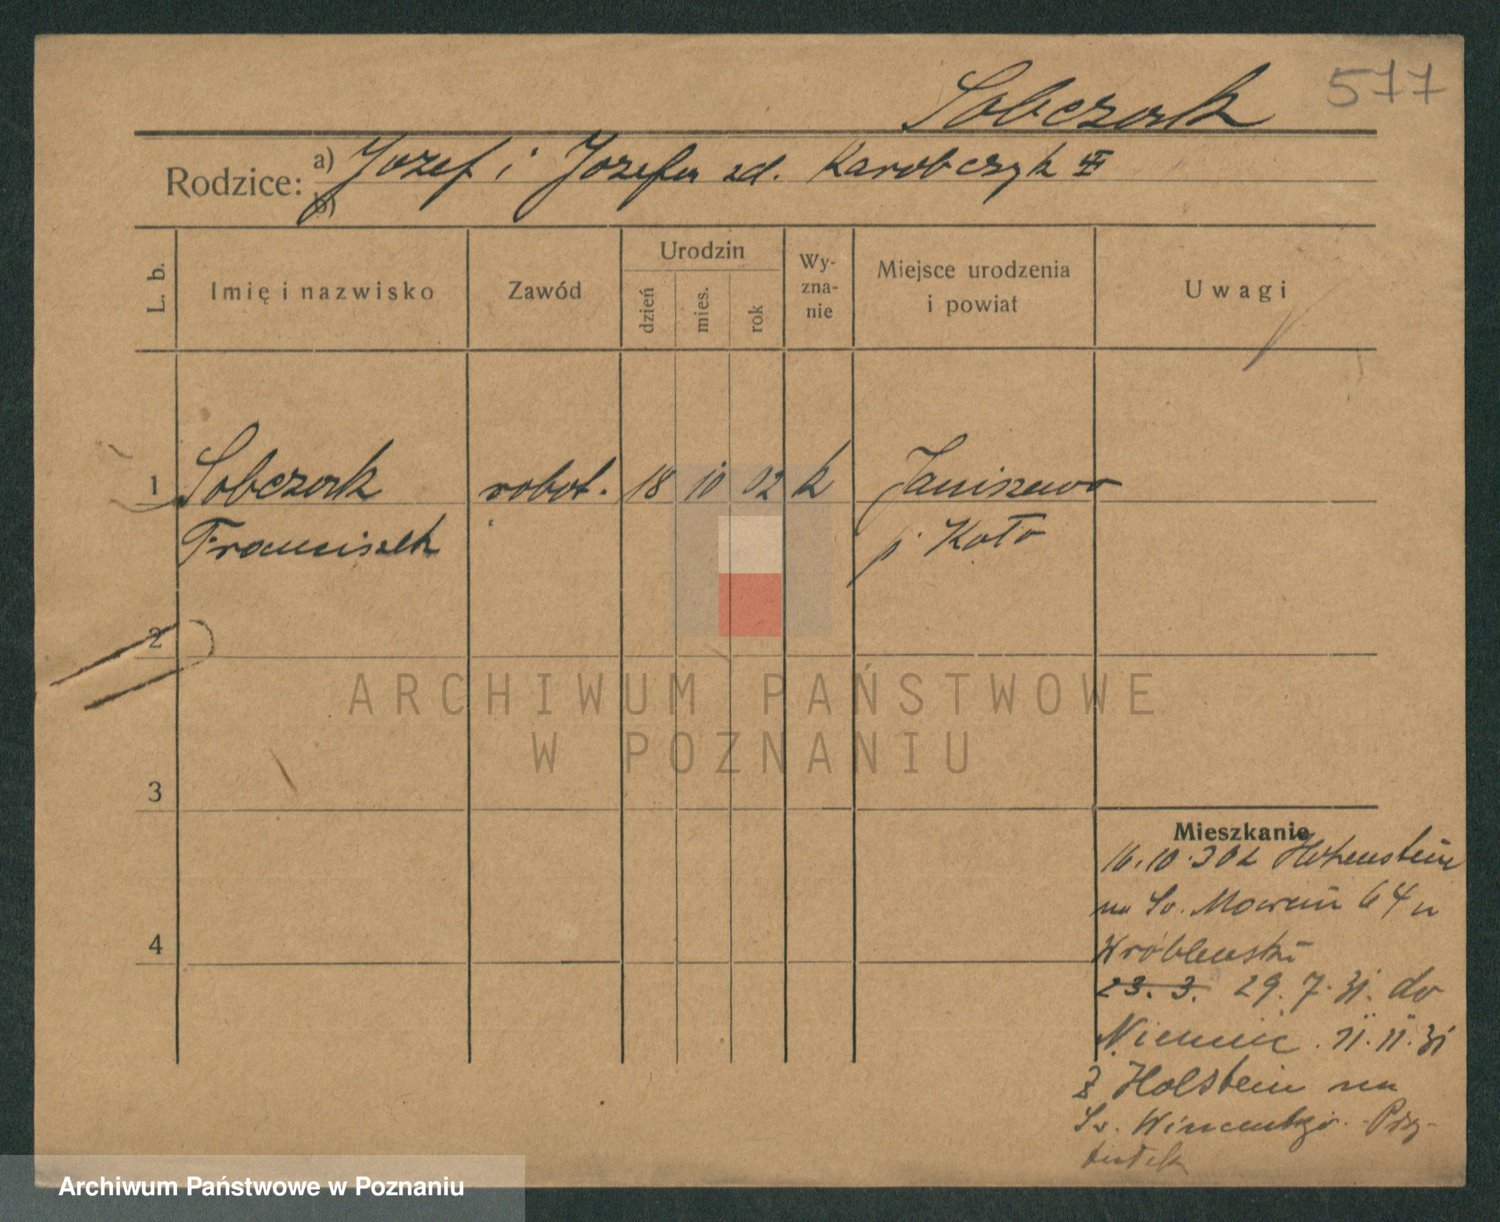 Sobczak 577
Rodzice: a) Jozef i Jozefa zd. Karobczyk
b)
L. b. Imię i nazwisko Zawód Urodzin dzień mies. rok Wy-zna-nie Miejsce urodzenia i powiat Uwagi
1 Sobczak robot. 18 10 02 k Janiszewo
Franciszek p. Koło
2
ARCHIWUM PAŃSTWOWE
W POZNANIU
3
Mieszkanie
16.10.30 z Hohenstein
na Św. Marcin 64 u
4
Wróblewski
23. 3. 29. 7. 31. do
Niemiec. 11. 11. 31
z Holstein na
Św. Wincentego Przy-
tułek
Archiwum Państwowe w Poznaniu